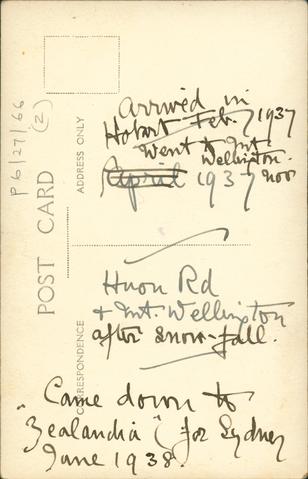 Arrived in
Hobart Feb. 1937
Went to Mt.
Wellington.
April 1937
Huon Rd
& Mt. Wellington
after snow-fall.
Came down to
"Zealandia" for Sydney
June 1938.
POST CARD
ADDRESS ONLY
CORRESPONDENCE
P6/27/66
(2)